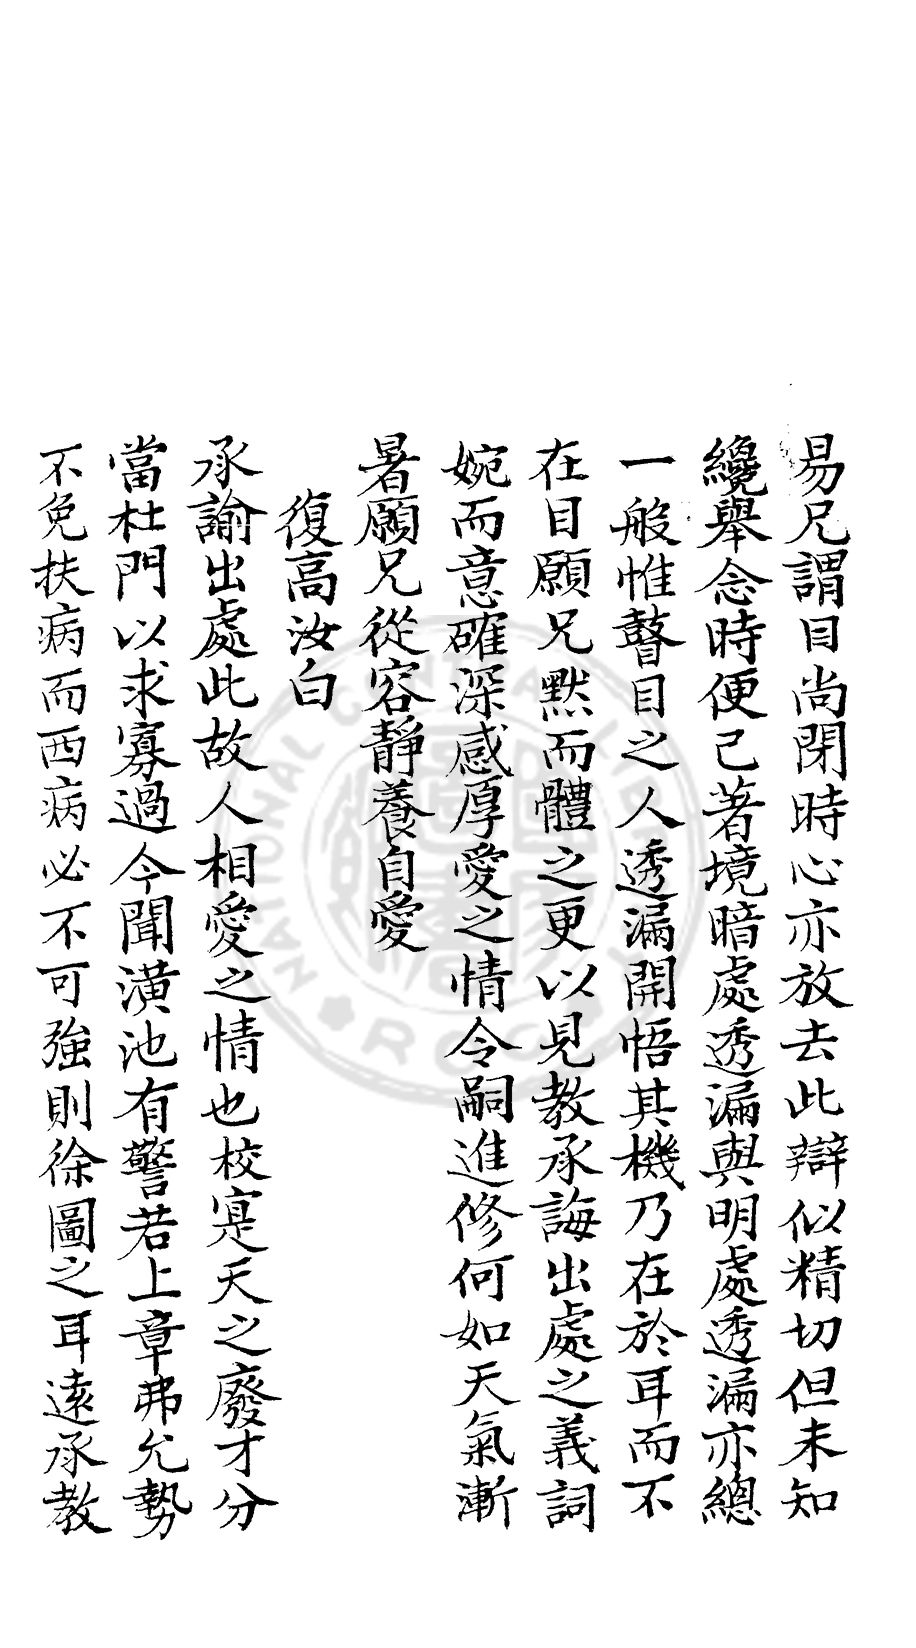 易兄謂目尚閉時心亦放去此辯似精切但未知
纔舉念時便已著境暗處透漏與明處透漏亦總
一般惟瞽目之人透漏開悟其機乃在於耳而不
在目願兄默而體之更以見教承誨出處之義詞
婉而意確深感厚愛之情令嗣進修何如天氣漸
暑願兄從容靜養自愛
復高汝白
承諭出處此故人相愛之情也校寔天之廢才分
當杜門以求寡過今聞潢池有警若上章弗允勢
不免扶病而西病必不可強則徐圖之耳遠承教
NATIONAL CENTRAL LIBRARY
R.O.C.